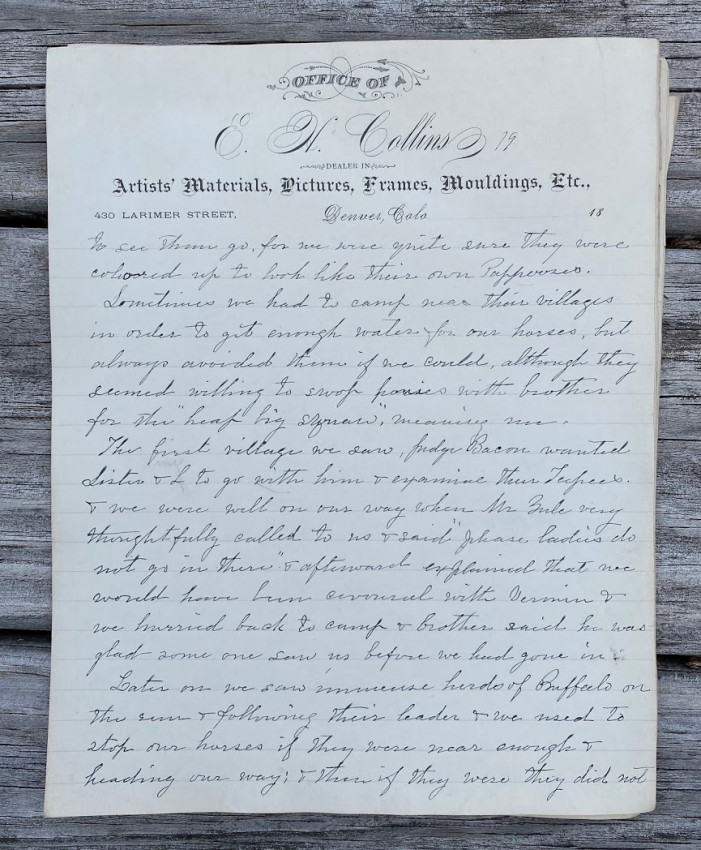 OFFICE OF
E. H. Collins 19
DEALER IN
Artists' Materials, Pictures, Frames, Mouldings, Etc.,
430 LARIMER STREET, Denver, Colo 18
to see them go, for we were quite sure they were
coloured up to look like their own Pappooses.
Sometimes we had to camp near their villages
in order to get enough water for our horses, but
always avoided them if we could, although they
seemed willing to swop ponies with brother
for the "heap big squaw", meaning me.
The first village we saw, Judge Bacon wanted
Sister & I to go with him & examine their Teepees.
& we were well on our way when Mr very
thoughtfully called to us & said "please ladies do
not go in there" & afterward explained that we
would have been covered with Vermin &
we hurried back to camp & brother said he was
glad some one saw us before we had gone in.
Later on we saw immense herds of Buffalo on
the run & following their leader & we used to
stop our horses if they were near enough &
heading our way; & then if they were they did not